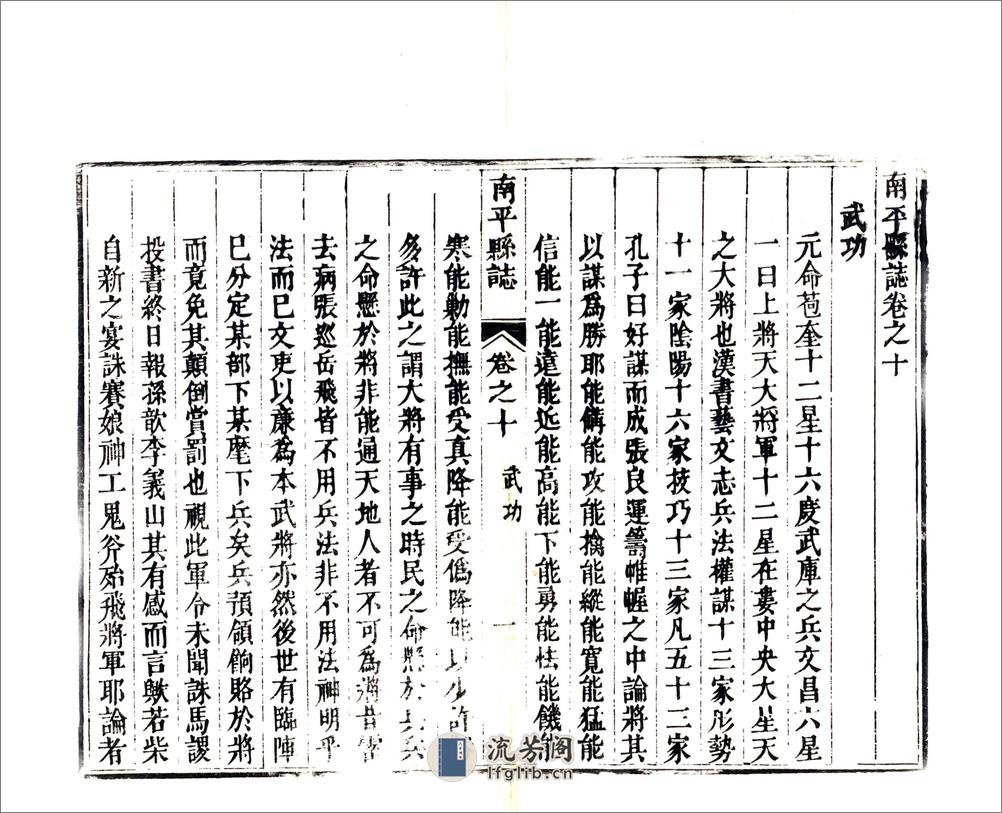 南平縣誌卷之十
武功
元命苞奎十二星十六度武庫之兵文昌六星
一曰上將天大將軍十二星在婁中央大星天
之大將也漢書藝文志兵法權謀十三家形勢
十一家陰陽十六家技巧十三家凡五十三家
孔子曰好謀而成張良運籌帷幄之中論將其
以謀為勝耶能備能攻能擒能縱能寬能猛能
信能一能遠能近能高能下能勇能怯能饑能
南平縣誌 卷之十 武功 一
寒能勦能撫能受真降能受偽降能以少許
多許此之謂大將有事之時民之命懸於兵兵
之命懸於將非能通天地人者不可為將昔霍
去病張巡岳飛皆不用兵法非不用法神明乎
法而已文吏以廉為本武將亦然後世有臨陣
已分定某部下某麾下兵矣兵預領餉賂於將
而竟免其顛倒賞罰也視此軍令未聞誅馬謖
投書終日報孫歆李義山其有感而言歟若柴
自新之宴誅賽娘神工鬼斧殆飛將軍耶論者
流芳閣
lfglib.cn